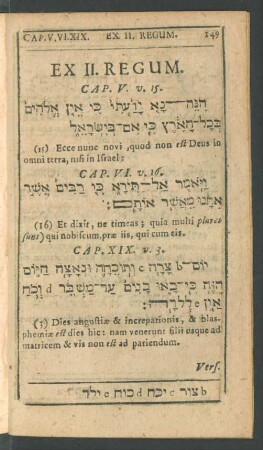 CAP. V. VI. XIX. EX II. REGUM. 149
EX II. REGUM.
CAP. V. v. 15.
הִנֵּה־נָא יָדַעְתִּי כִּי אֵין אֱלֹהִים
בְּכָל־הָאָרֶץ כִּי אִם־בְּיִשְׂרָאֵל
(15) Ecce nunc novi, quod non est Deus in
omni terra, nisi in Israel:
CAP. VI. v. 16.
וַיֹּאמֶר אַל־תִּירָא כִּי רַבִּים אֲשֶׁר
אִתָּנוּ מֵאֲשֶׁר אוֹתָם:
(16) Et dixit, ne timeas; quia multi plures
sunt) qui nobiscum, præ iis, qui cum eis.
CAP. XIX. v. 3.
יוֹם־ b צָרָה c וְתוֹכֵחָה וּנְאָצָה הַיּוֹם
הַזֶּה כִּי־בָאוּ בָנִים עַד־מַשְׁבֵּר d וְכֹחַ
אַיִן e לְלֵדָה:
(3) Dies angustiæ & increpationis, & blas-
phemiæ est dies hic: nam venerunt filii usque ad
matricem & vis non est ad pariendum.
Vers.
b צור c יכח d כוח e ילד